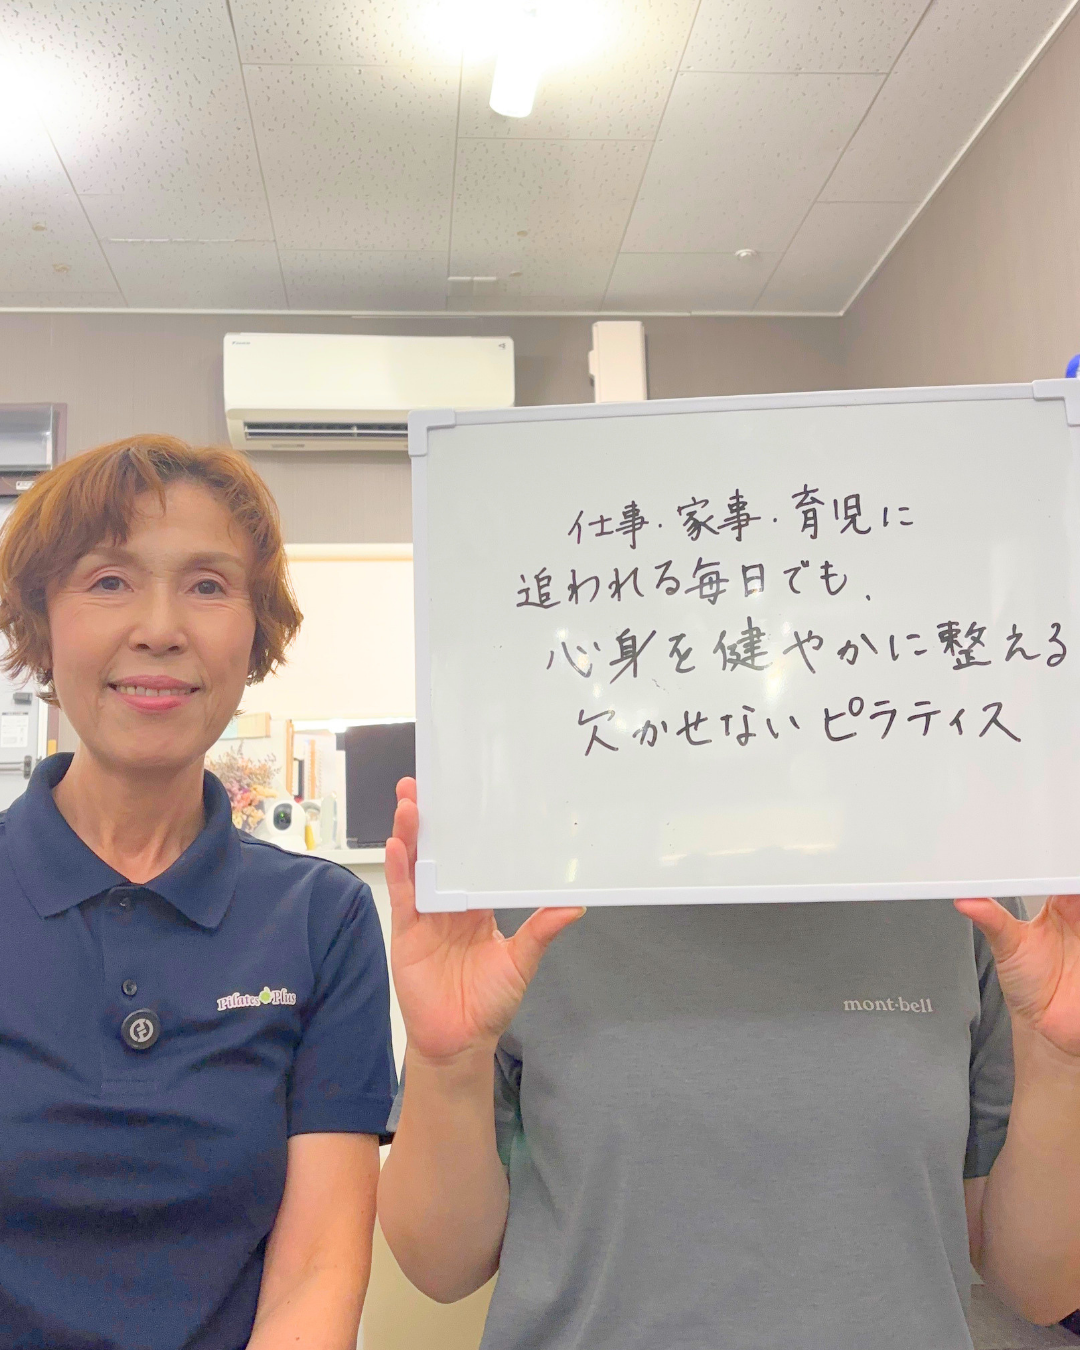 仕事・家事・育児に
追われる毎日でも、
心身を健やかに整える
欠かせないピラティス
Pilates Plus
mont·bell